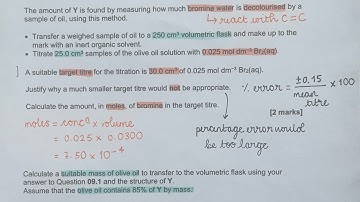 The amount of Y is found by measuring how much bromine water is decolourised by a
sample of oil, using this method.
↳ react with C = C
• Transfer a weighed sample of oil to a 250 cm³ volumetric flask and make up to the
mark with an inert organic solvent.
• Titrate 25.0 cm³ samples of the olive oil solution with 0.025 mol dm⁻³ Br₂(aq).
] A suitable target titre for the titration is 30.0 cm³ of 0.025 mol dm⁻³ Br₂(aq).
Justify why a much smaller target titre would not be appropriate.
% error = ±0.15 / mean titre × 100
Calculate the amount, in moles, of bromine in the target titre.
[2 marks]
moles = concⁿ × volume
= 0.025 × 0.0300
= 7.50 × 10⁻⁴
percentage error would
be too large
Calculate a suitable mass of olive oil to transfer to the volumetric flask using your
answer to Question 09.1 and the structure of Y.
Assume that the olive oil contains 85% of Y by mass.